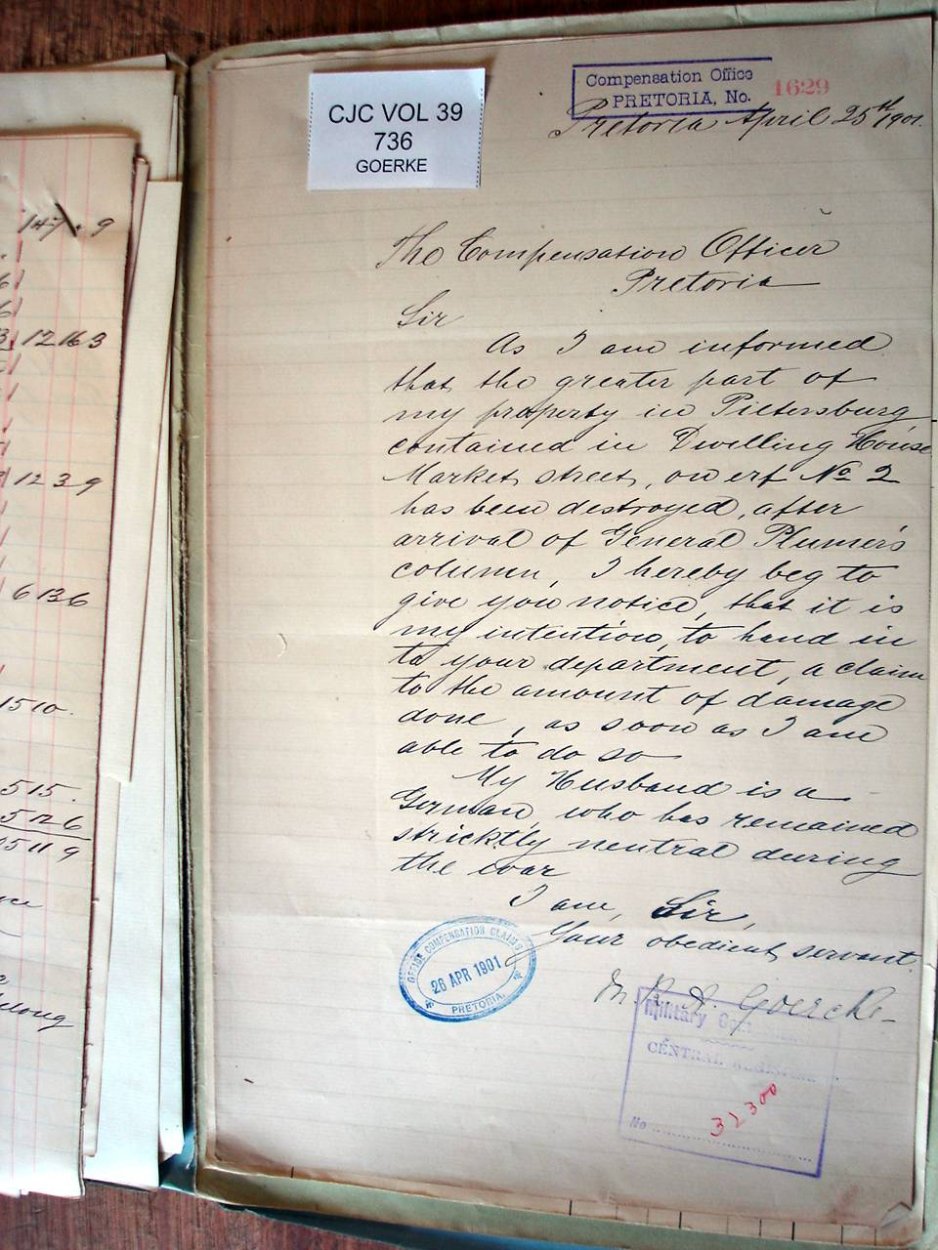 147.9
12163
1239
6136
1510.
515.
CJC VOL 39
736
GOERKE
Compensation Office
PRETORIA, No. 1629
Pretoria April 25th 1901.
The Compensation Officer
Pretoria
Sir
As I am informed
that the greater part of
my property in Pietersburg
contained in Dwelling House
Market street, on erf No 2
has been destroyed, after
arrival of General Plumer's
column, I hereby beg to
give you notice, that it is
my intention, to hand in
to your department, a claim
to the amount of damage
done, as soon as I am
able to do so
My Husband is a
German, who has remained
stricktly neutral during
the war
I am, Sir,
Your obedient servant.
Goercke
OFFICE COMPENSATION CLAIMS
26 APR 1901
PRETORIA.
Military
CENTRAL
No
32300